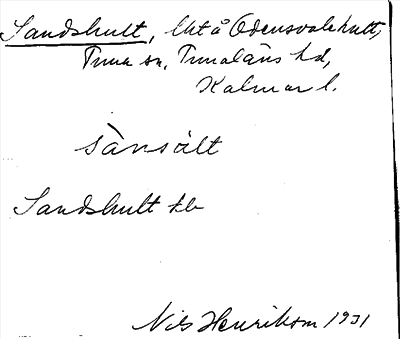 Sandshult, lht å Odensvalehult,
Tuna sn, Tunaläns hd,
Kalmar l.
sànsàlt
Sandshult hb
Nils Henrikson 1931